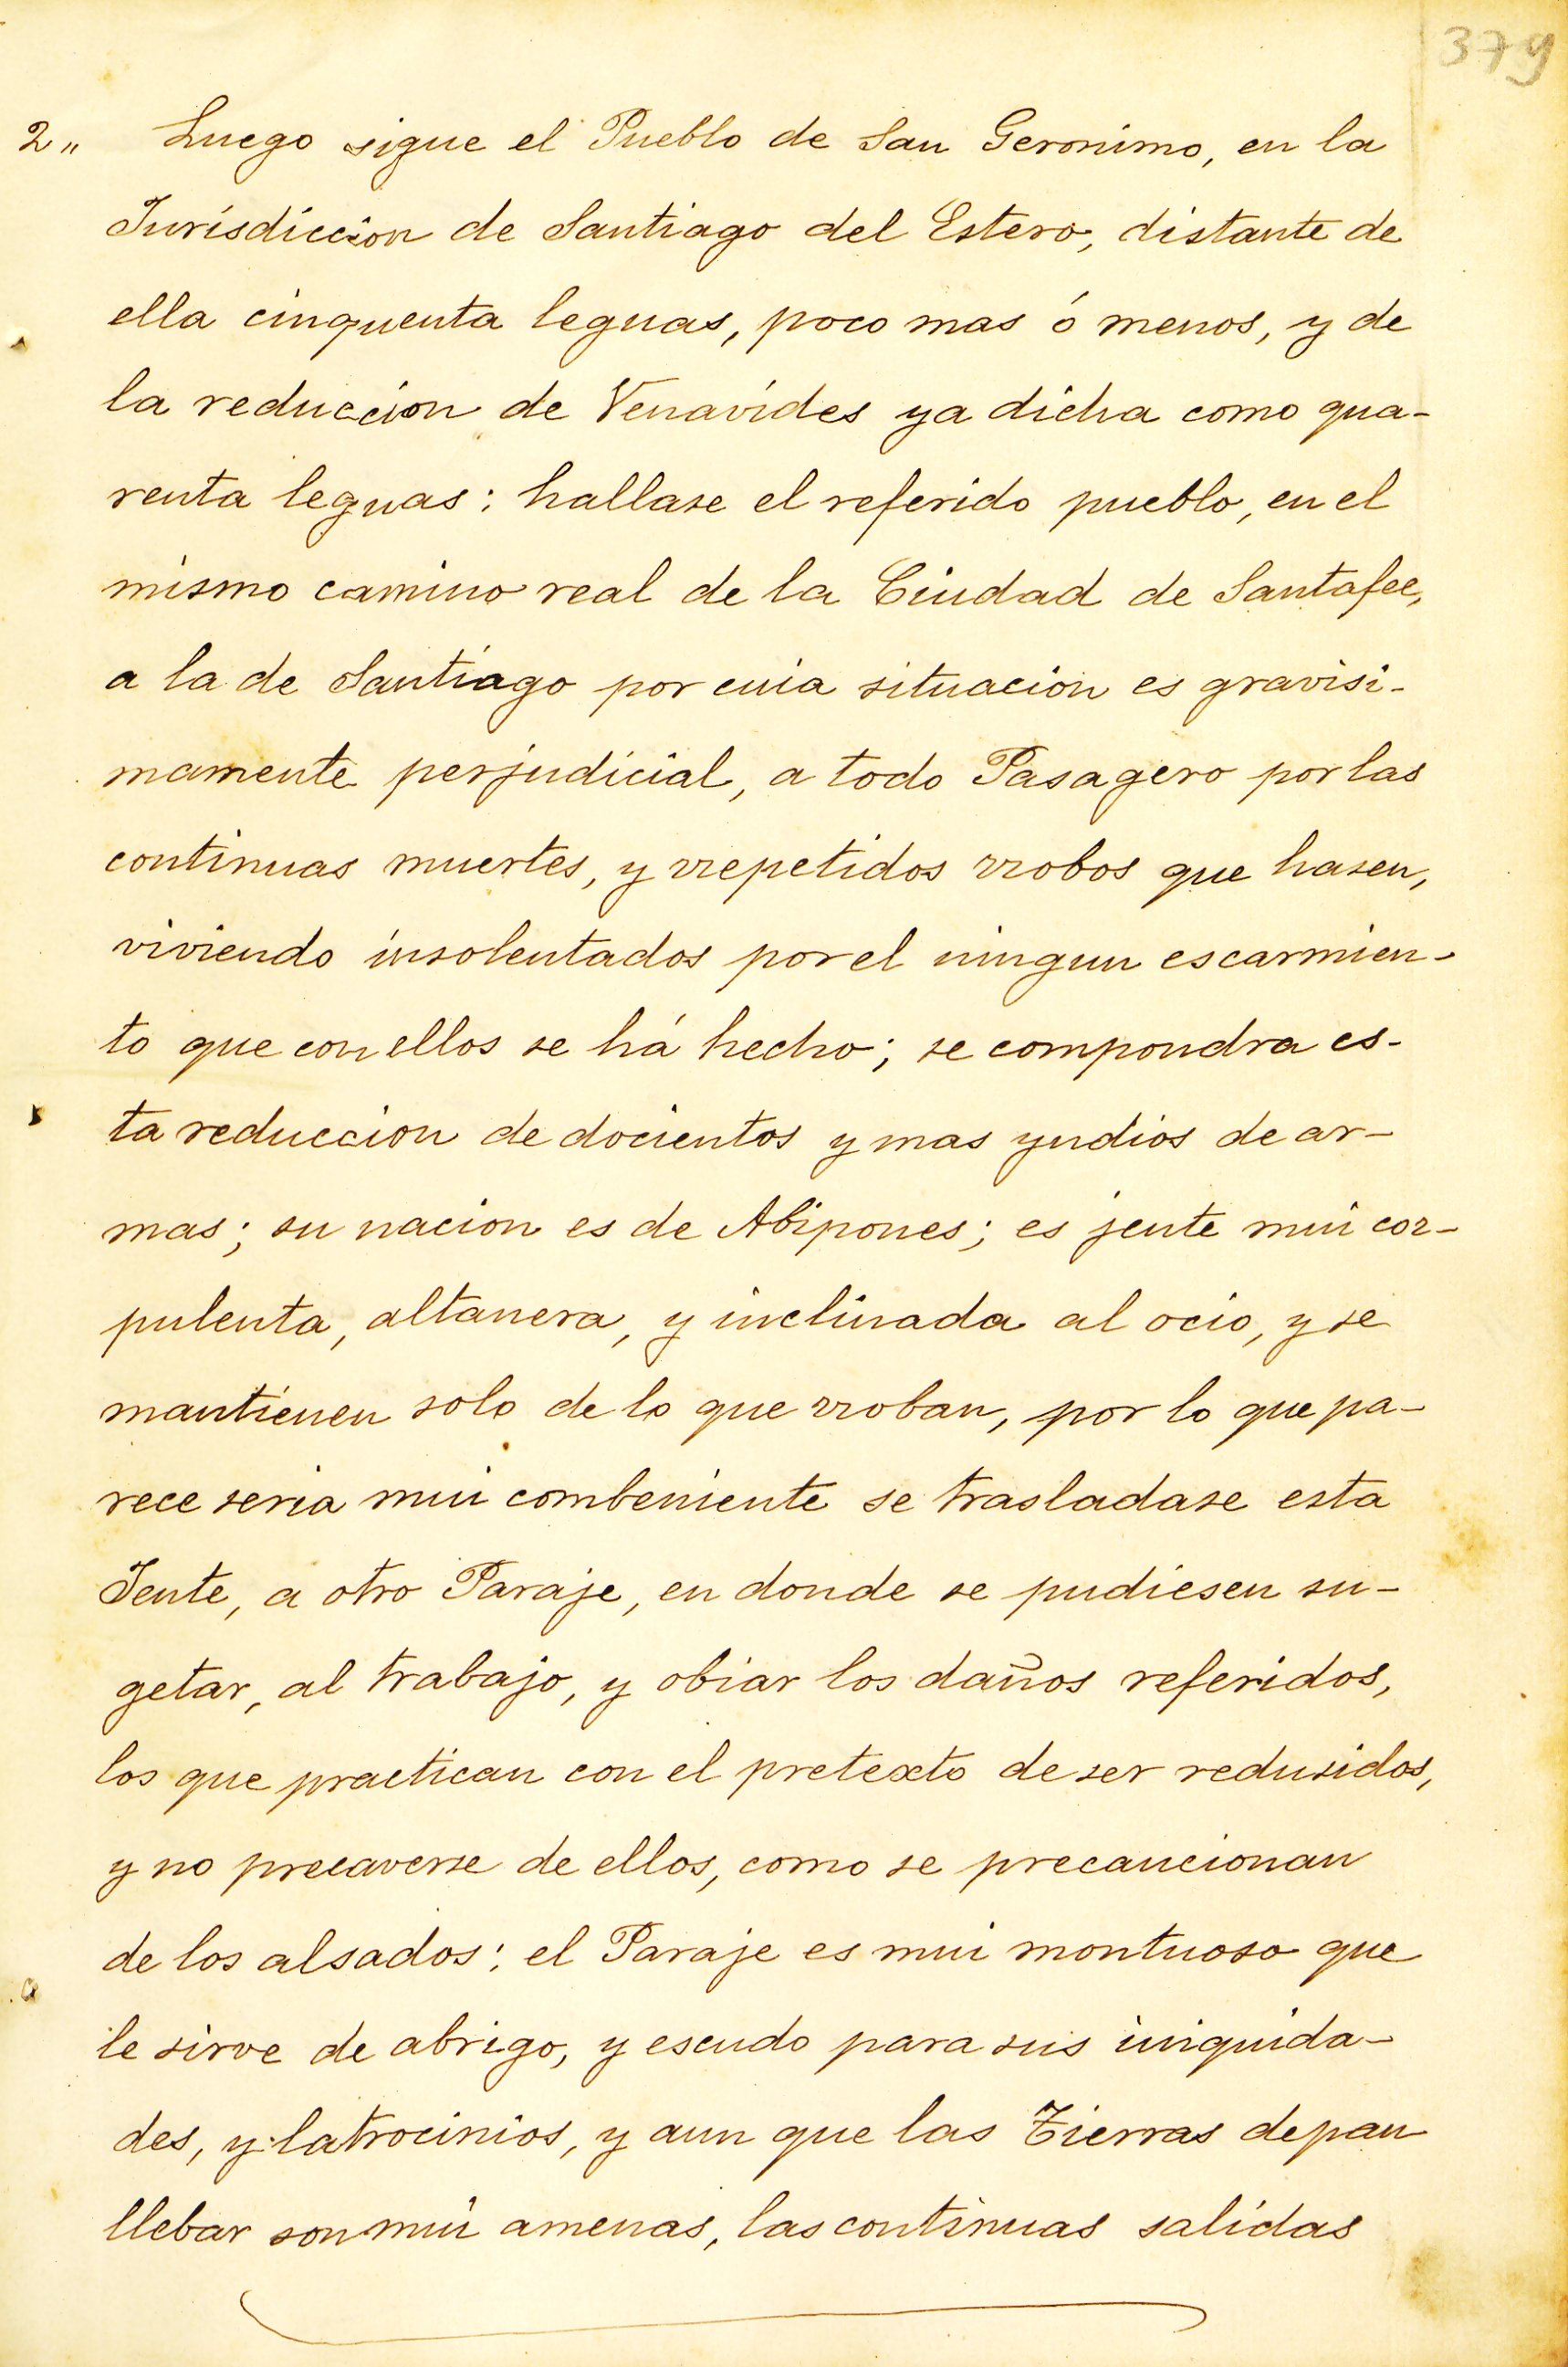 379
2„ Luego sigue el Pueblo de San Geronimo, en la
Jurisdiccion de Santiago del Estero, distante de
ella cinquenta leguas, poco mas ó menos, y de
la reduccion de Venavides ya dicha como qua-
renta leguas; hallase el referido pueblo, en el
mismo camino real de la Ciudad de Santafee,
a la de Santiago por cuia situacion es gravisi-
mamente perjudicial, a todo Pasagero por las
continuas muertes, y rrepetidos rrobos que hasen,
viviendo insolentados por el ningun escarmien-
to que con ellos se há hecho; se compondra es-
ta reduccion de docientos y mas yndios de ar-
mas; su nacion es de Abipones; es jente mui cor-
pulenta, altanera, y inclinada al ocio, y se
mantienen solo de lo que rroban, por lo que pa-
rece seria mui combeniente se trasladase esta
Jente, a otro Paraje, en donde se pudiesen su-
getar, al trabajo, y obiar los daños referidos,
los que practican con el pretexto de ser redusidos,
y no precaverse de ellos, como se precaucionan
de los alsados; el Paraje es mui montuoso que
le sirve de abrigo, y escudo para sus iniquida-
des, y latrocinios, y aun que las Tierras de pan
llebar son mui amenas, las continuas salidas